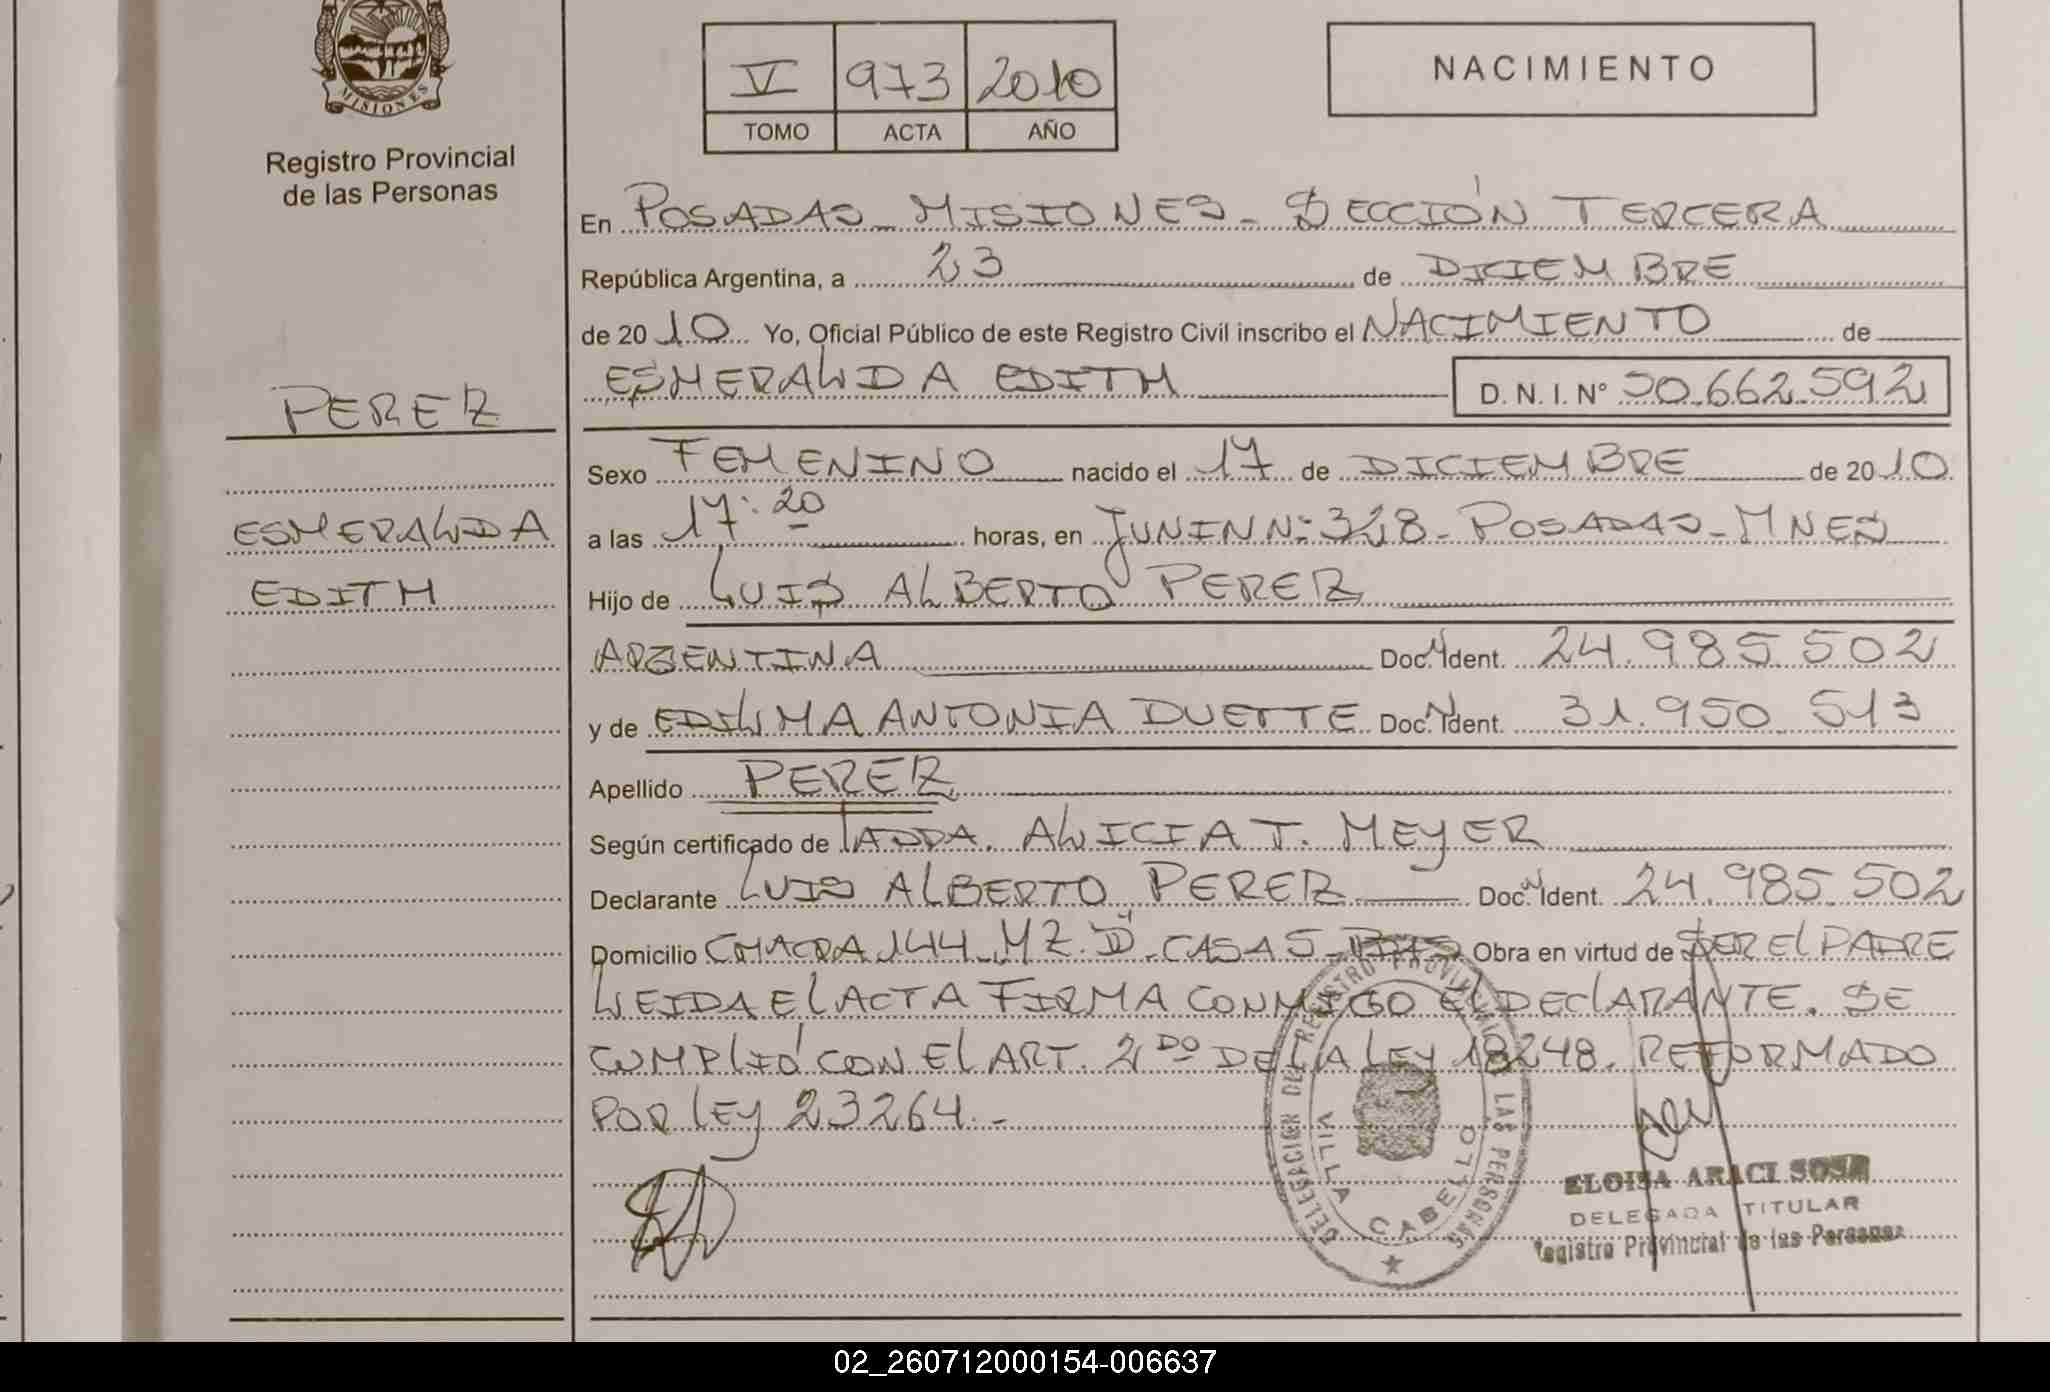 MISIONES
Registro Provincial
de las Personas
V 973 2010
TOMO ACTA AÑO
NACIMIENTO
En POSADAS - MISIONES - SECCIÓN TERCERA
República Argentina, a 23 de DICIEMBRE
de 2010 Yo, Oficial Público de este Registro Civil inscribo el NACIMIENTO de
ESMERALDA EDITH D. N. I. N° 50.662.592
PEREZ
ESMERALDA
EDITH
Sexo FEMENINO nacido el 17 de DICIEMBRE de 2010
a las 17:20 horas, en JUNIN N: 328 - POSADAS - MNES
Hijo de LUIS ALBERTO PEREZ
ARGENTINA Doc. N Ident. 24.985.502
y de EDILMA ANTONIA DUETTE Doc. N Ident. 31.950.513
Apellido PEREZ
Según certificado de ADDA. ALICIA T. MEYER
Declarante LUIS ALBERTO PEREZ Doc. N Ident. 24.985.502
Domicilio CHACRA 144 - MZ. D - CASA 5 - Obra en virtud de SER EL PADRE
LEIDA EL ACTA FIRMA CONMIGO EL DECLARANTE. SE
CUMPLIÓ CON EL ART. 2DO DE LA LEY 18248. REFORMADO
POR LEY 23264. -
DELEGACION DEL REGISTRO PROVINCIAL DE LAS PERSONAS
VILLA CABELLO
ELOISA ARACI SOSA
DELEGADA TITULAR
Registro Provincial de las Personas
02_260712000154-006637